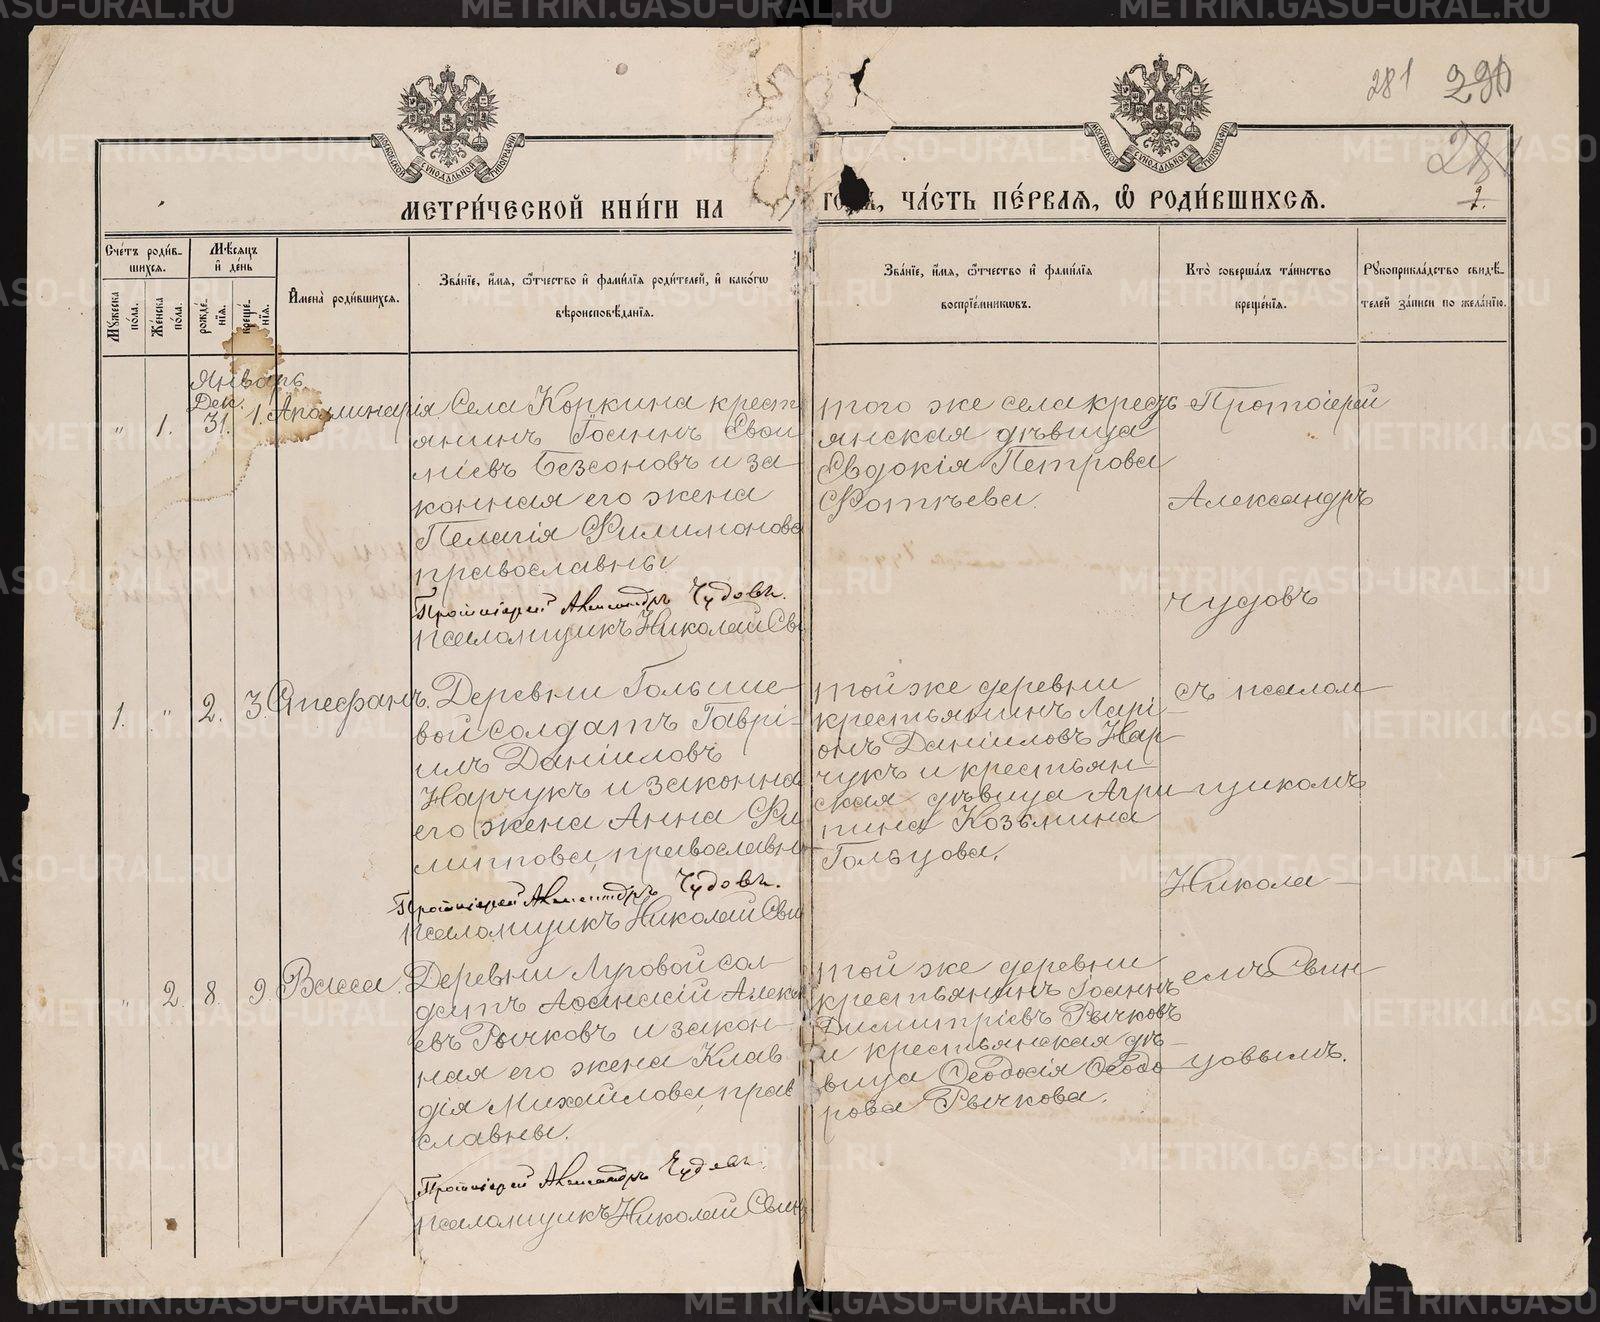 281 290
284
2.
МОСКОВСКОЙ СѴНОДАЛЬНОЙ ТИПОГРАФІИ
МОСКОВСКОЙ СѴНОДАЛЬНОЙ ТИПОГРАФІИ
МЕТРИ́ЧЕСКОЙ КНИ́ГИ НА ГОДЪ, ЧА́СТЬ ПЕ́РВАѦ, Ѡ҆ РОДИ́ВШИХСѦ.
Сче́тъ роди́в-
шихсѧ.
Мꙋжеска по́ла.
Же́нска по́ла.
Мѣ́сѧцъ
и҆ де́нь
рожде́-
нїѧ.
креще́-
нїѧ.
И҆мена̀ роди́вшихсѧ.
Зва́нїе, и҆́мѧ, ѻ҆́тчество и҆ фами́лїѧ роди́телей, и҆ како́гѡ
вѣроисповѣ́данїѧ.
Зва́нїе, и҆́мѧ, ѻ҆́тчество и҆ фами́лїѧ
воспрїе́мникѡвъ.
Кто̀ соверша́лъ та́инство
креще́нїѧ.
Рꙋкоприкла́дство свидѣ́-
телей за́писи по жела́нїю.
Январь
Дек.
" 1. 31. 1. Аполинарія.
Села Коркина крест
янинъ Іоаннъ Евои
міевъ Безсоновъ и за-
конная его жена
Пелагія Филимонова
православны.
Протоіерей Александръ Чудовъ.
псаломщикъ Николай Сви
того же села кресть
янская дѣвица
Евдокія Петрова
Фотѣева.
Протоіерей
Александръ
Чудовъ
1. " 2. 3. Стефанъ.
Деревни Гольше-
вой солдатъ Гаврі-
илъ Даніиловъ
Нарчукъ и законна
его жена Анна Фи
липпова, православн
Протоіерей Александръ Чудовъ.
псаломщикъ Николай Сви
той же деревни
крестьянинъ Ларі-
онъ Даніиловъ Нар-
чукъ и крестьян-
ская дѣвица Агри-
пина Козьмина
Гольцова.
съ псалом-
щикомъ
Никола-
" 2. 8. 9. Васса.
Деревни Луговой сол-
датъ Аѳанасій Алекс
евъ Рычковъ и закон-
ная его жена Клав
дія Михайлова, прав
славны.
Протоіерей Александръ Чудовъ.
псаломщикъ Николай Свин
той же деревни
крестьянинъ Іоаннъ
Димитріевъ Рычковъ
и крестьянская дѣ-
вица Ѳеодосія Ѳеодо-
рова Рычкова.
емъ Свин-
цовымъ.
METRIKI.GASO-URAL.RU